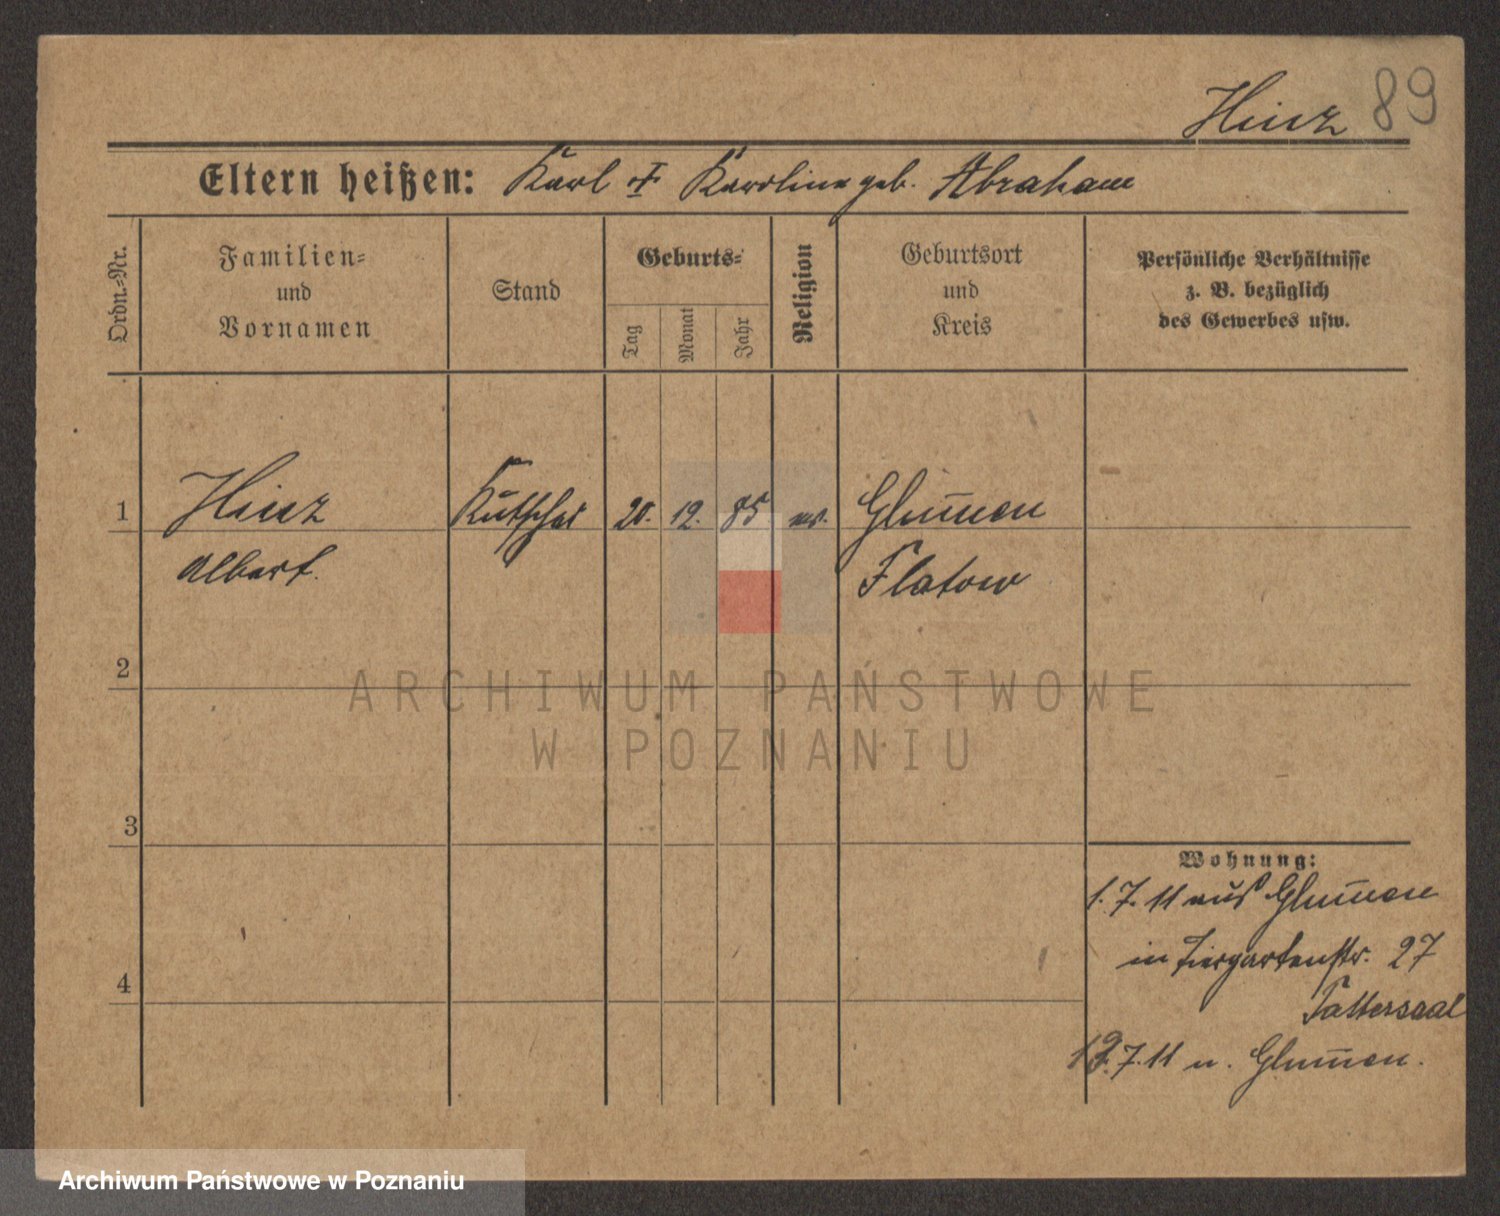 Hinz 89
Eltern heißen: Karl ✝ Karoline geb. Abraham
Ordn.-Nr.
Familien-
und
Vornamen
Stand
Geburts-
Tag
Monat
Jahr
Religion
Geburtsort
und
Kreis
Persönliche Verhältnisse
z. B. bezüglich
des Gewerbes usw.
1 Hinz Kutscher 20. 12. 85 ev. Glum̅en
Albert. Flatow
2
ARCHIWUM PAŃSTWOWE
W POZNANIU
3
Wohnung:
1. 7. 11 aus Glum̅en
in Tiergartenstr. 27
4
Tattersaal
7. 11 n. Glum̅en.
Archiwum Państwowe w Poznaniu